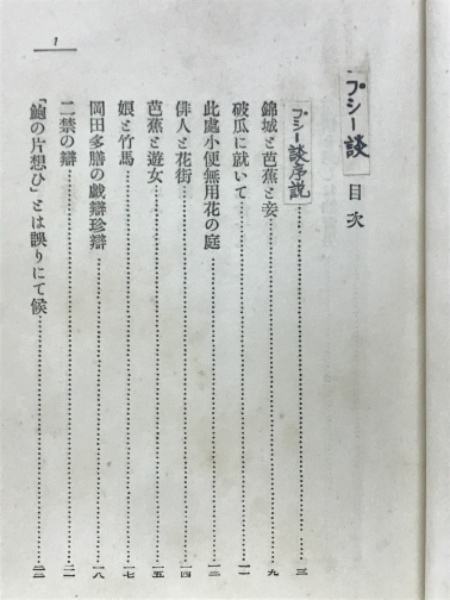 プシー談 目次
プシー談序説 三
錦城と芭蕉と妾 九
破瓜に就いて 一一
此處小便無用花の庭 一二
俳人と花街 一四
芭蕉と遊女 一五
娘と竹馬 一七
岡田多膳の戯辯珍辯 一八
二禁の辯 二一
「鮑の片想ひ」とは誤りにて候 二二
1